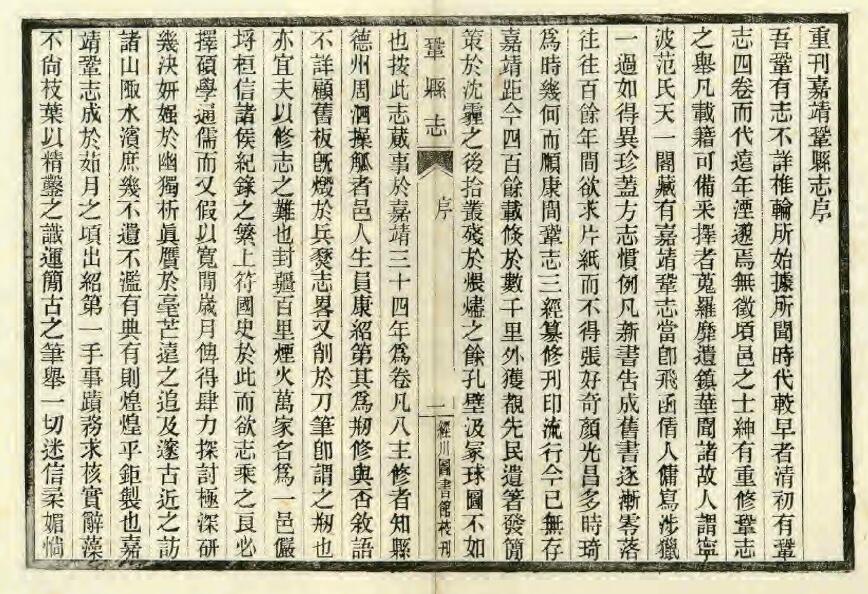 重刊嘉靖鞏縣志序
吾鞏有志不詳椎輪所始據所聞時代較早者清初有鞏
志四卷而代遠年湮邈焉無徵頃邑之士紳有重修鞏志
之舉凡載籍可備采擇者蒐羅靡遺鎮華聞諸故人謂寧
波范氏天一閣藏有嘉靖鞏志當卽飛函倩人傭寫涉獵
一過如得異珍蓋方志慣例凡新書告成舊書逐漸零落
往往百餘年間欲求片紙而不得張好奇顏光昌多時琦
爲時幾何而順康間鞏志三經纂修刊印流行今已無存
嘉靖距今四百餘載倐於數千里外獲覩先民遺箸發簡
策於沈霾之後拾叢殘於煨燼之餘孔壁汲冢球圖不如
鞏縣志
序
一
經川圖書館校刊
也按此志蕆事於嘉靖三十四年爲卷凡八主修者知縣
德州周泗操觚者邑人生員康紹第其爲刱修與否敘語
不詳顧舊板旣燬於兵燹志畧又削於刀筆卽謂之刱也
亦宜夫以修志之難也封疆百里煙火萬家名爲一邑儼
埒桓信諸侯紀錄之繁上符國史於此而欲志乘之良必
擇碩學通儒而又假以寬閒歲月俾得肆力探討極深研
幾決妍媸於幽獨析眞贋於毫芒遠之追及邃古近之訪
諸山陬水濱庶幾不遺不濫有典有則煌煌乎鉅製也嘉
靖鞏志成於茹月之項出紹第一手事蹟務求核實辭藻
不尙枝葉以精鑿之識運簡古之筆舉一切迷信柔媚惝